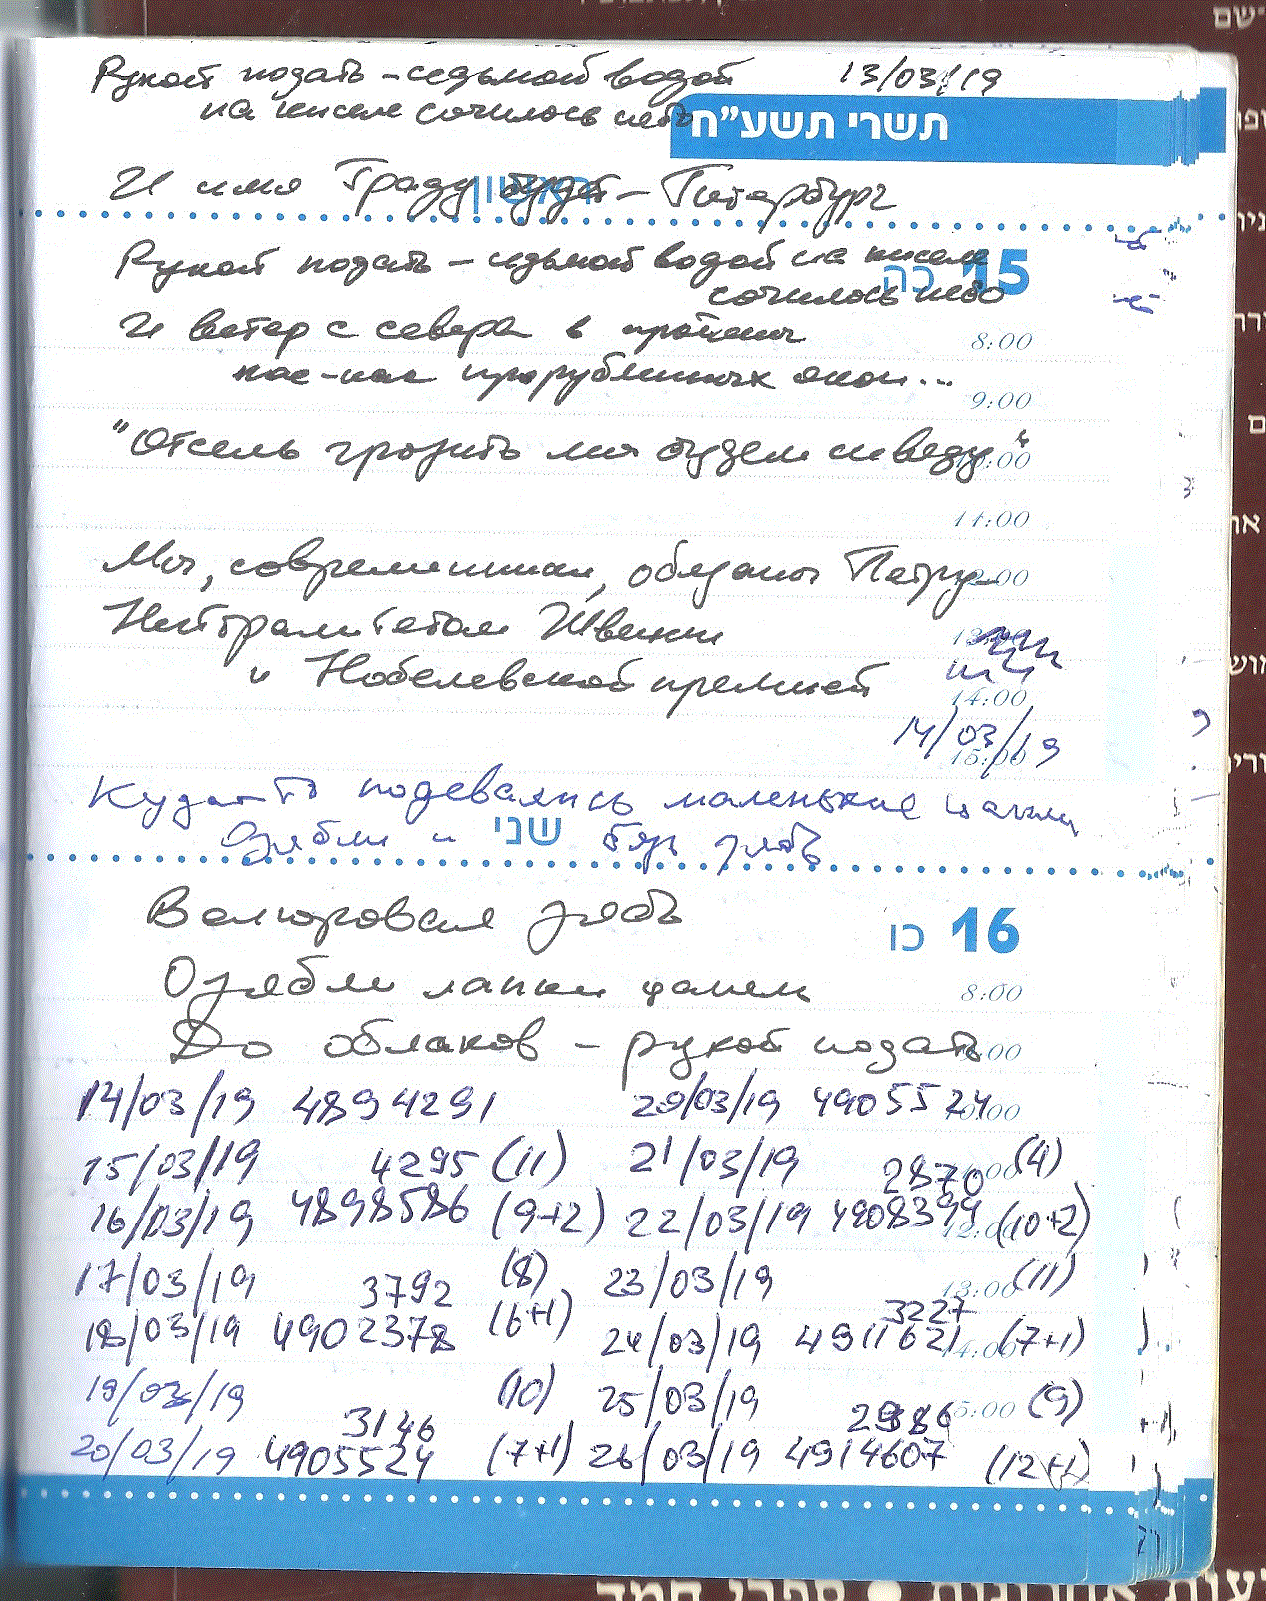 ישם
Рукой подать – седьмой водой 13/03/19
на киселе сочилось небо
תשרי תשע״ח
И имя Граду будет – Питербург
ראשון
Рукой подать – седьмой водой на киселе
15 כה
сочилось небо
И ветер с севера в
8:00
кое-как прорубленных окон...
9:00
"Отсель грозить мы будем шведу"
10:00
11:00
Мы, современники, обязаны Петру
12:00
Нейтралитетом Швеции
13:00
и Нобелевской премией
14:00
14/03/19
15:00
Куда-то подевались маленькие цапли
שני
Озябли и без зяб
Велюровая рябь
16 כו
Озябли лапки цапель
8:00
До облаков – рукой подать
9:00
14/03/19 4894291 20/03/19 4905524
10:00
15/03/19 4295 (11) 21/03/19 2870 (4)
11:00
16/03/19 4898586 (9+2) 22/03/19 4908394 (10+2)
12:00
17/03/19 3792 (8) 23/03/19 3227 (11)
13:00
18/03/19 4902378 (6+1) 24/03/19 4911621 (7+1)
14:00
19/03/19 3146 (10) 25/03/19 2986 (9)
15:00
20/03/19 4905524 (7+1) 26/03/19 4914607 (12+1)
ידיעות אחרונות • ספרי חמד